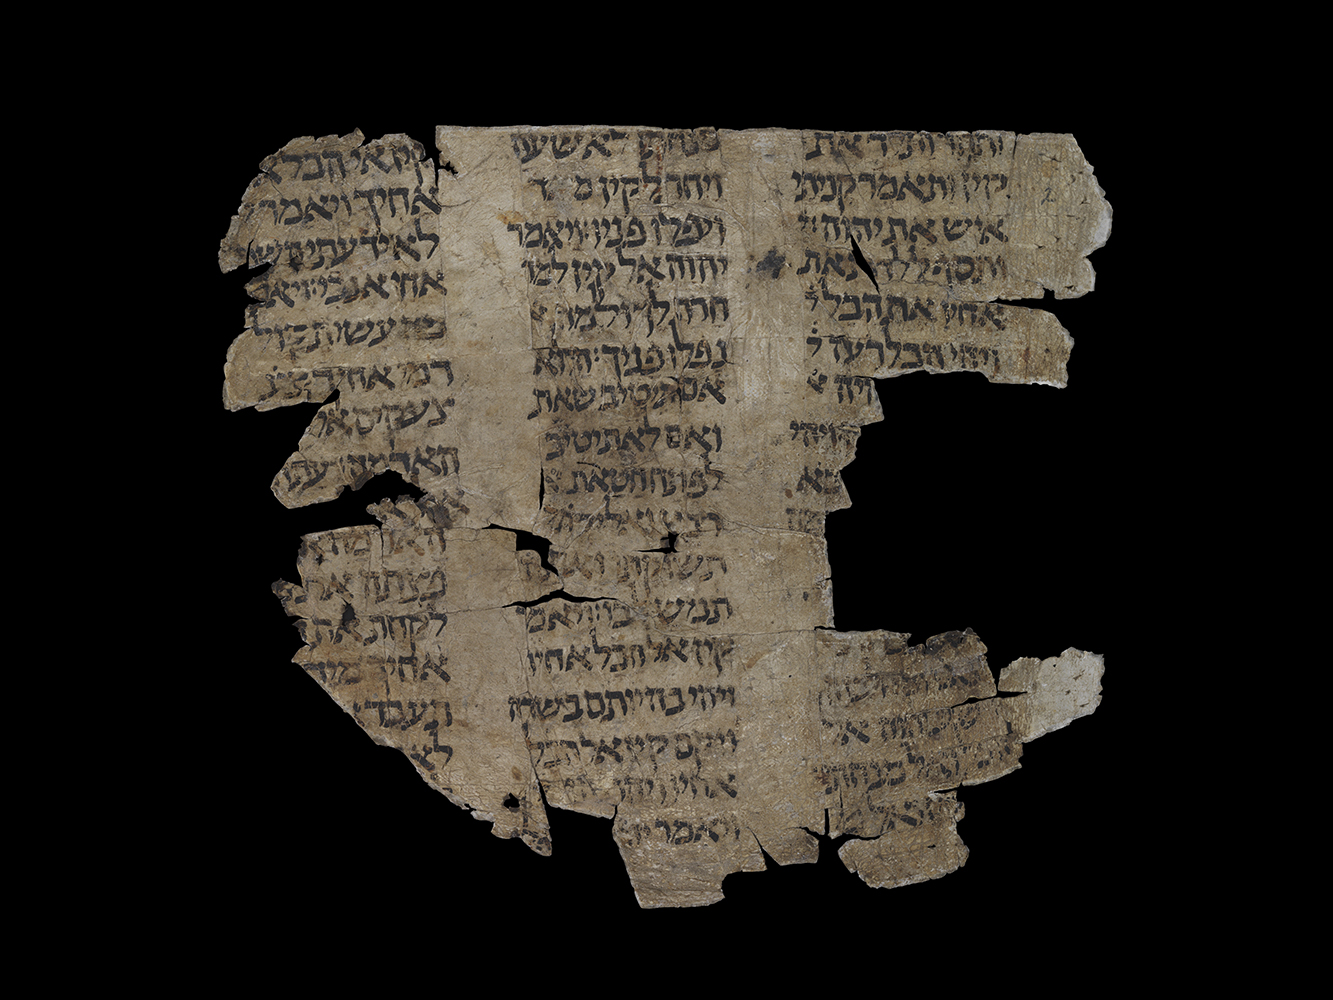 ותהר ותלד את
קין ותאמר קניתי
איש את יהוה׃
ותסף ללדת את
אחיו את הבל
ויהי הבל רעה
ויהי
יהוה אל
ואל מנחתו
מנחתו לא שעה
ויחר לקין מ ד
ויפלו פניו׃ ויאמר
יהוה אל קין למה
חרה לך ולמה
נפלו פניך׃ הלוא
אם תיטיב שאת
ואם לא תיטיב
לפתח חטאת
רבץ
תשוקתו ואתה
תמש בו׃ ויאמ
קין אל הבל אחיו
ויהי בהיותם בשדה
ויקם קין אל הבל
אחיו
ויאמר יה
קין אי הבל א
אחיך ויאמר
לא ידעתי הש
אחי אנכי׃ ויאמ
מה עשית קול
דמי אחיך
צעקים אל
האדמה׃ ועת
האדמה א
פצתה את
לקחת את
אחיך מיד
תעבד
לא